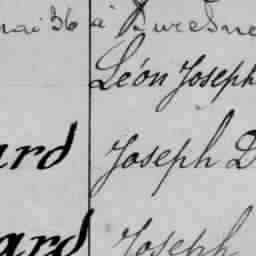 mai 36 à Suresne
Léon Joseph
ard Joseph D
ard Joseph